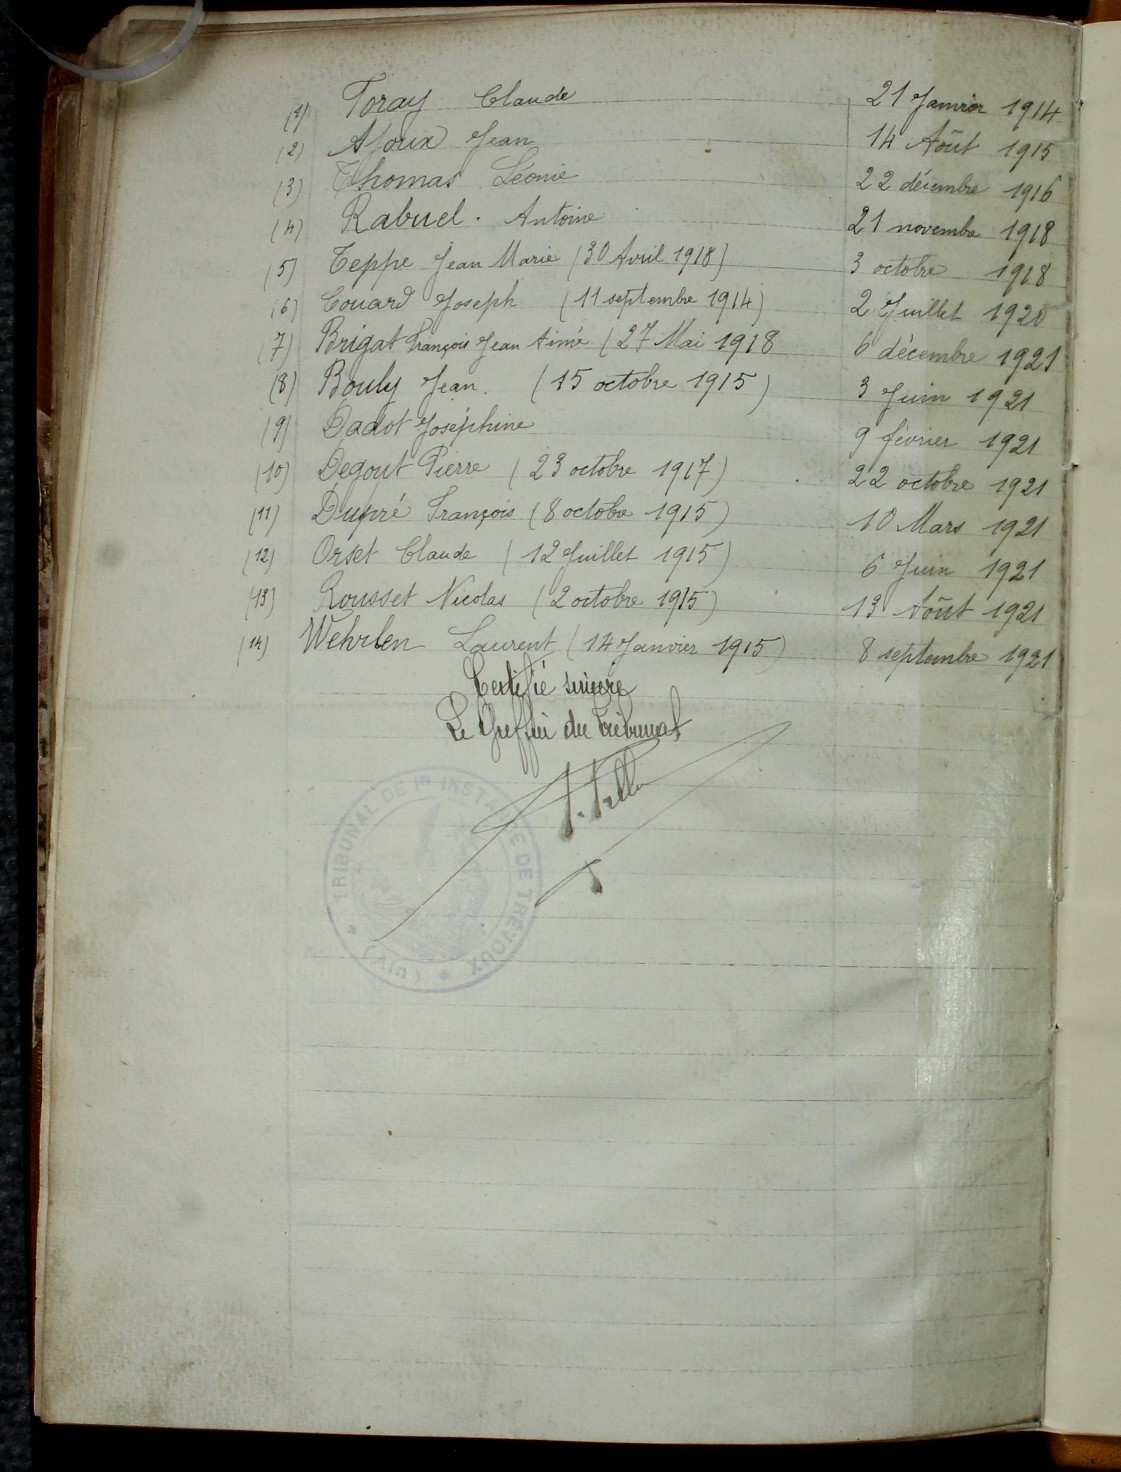 (1) Foray Claude 21 Janvier 1914
(2) Ajoux Jean 14 Août 1915
(3) Thomas Léonie 22 décembre 1916
(4) Rabuel. Antoine 21 novembre 1918
(5) Teppe Jean Marie (30 Avril 1918) 3 octobre 1918
(6) Couard Joseph (11 septembre 1914) 2 Juillet 1920
(7) Brigat François Jean Aimé (27 Mai 1918 6 décembre 1921
(8) Bouly Jean. (15 octobre 1915) 3 Juin 1921
(9) Dadot Joséphine 9 février 1921
(10) Degout Pierre (23 octobre 1917) 22 octobre 1921
(11) Dupré François (8 octobre 1915) 10 Mars 1921
(12) Orset Claude (12 Juillet 1915) 6 Juin 1921
(13) Rousset Nicolas (2 octobre 1915) 13 Août 1921
(14) Wehrlen Laurent (14 Janvier 1915) 8 septembre 1921
Certifié sincère
Le Greffier du Tribunal
TRIBUNAL DE 1re INSTANCE DE TREVOUX
(AIN)